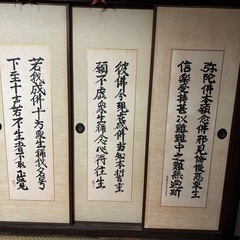 弥陀佛本願念佛邪見憍慢惡衆生
信楽受持甚以難難中之難無過斯
彼佛今現在成佛當知本誓重
願不虚衆生稱念必得往生
若我成佛十方衆生稱我名号
下至十声若不生者不取正覚